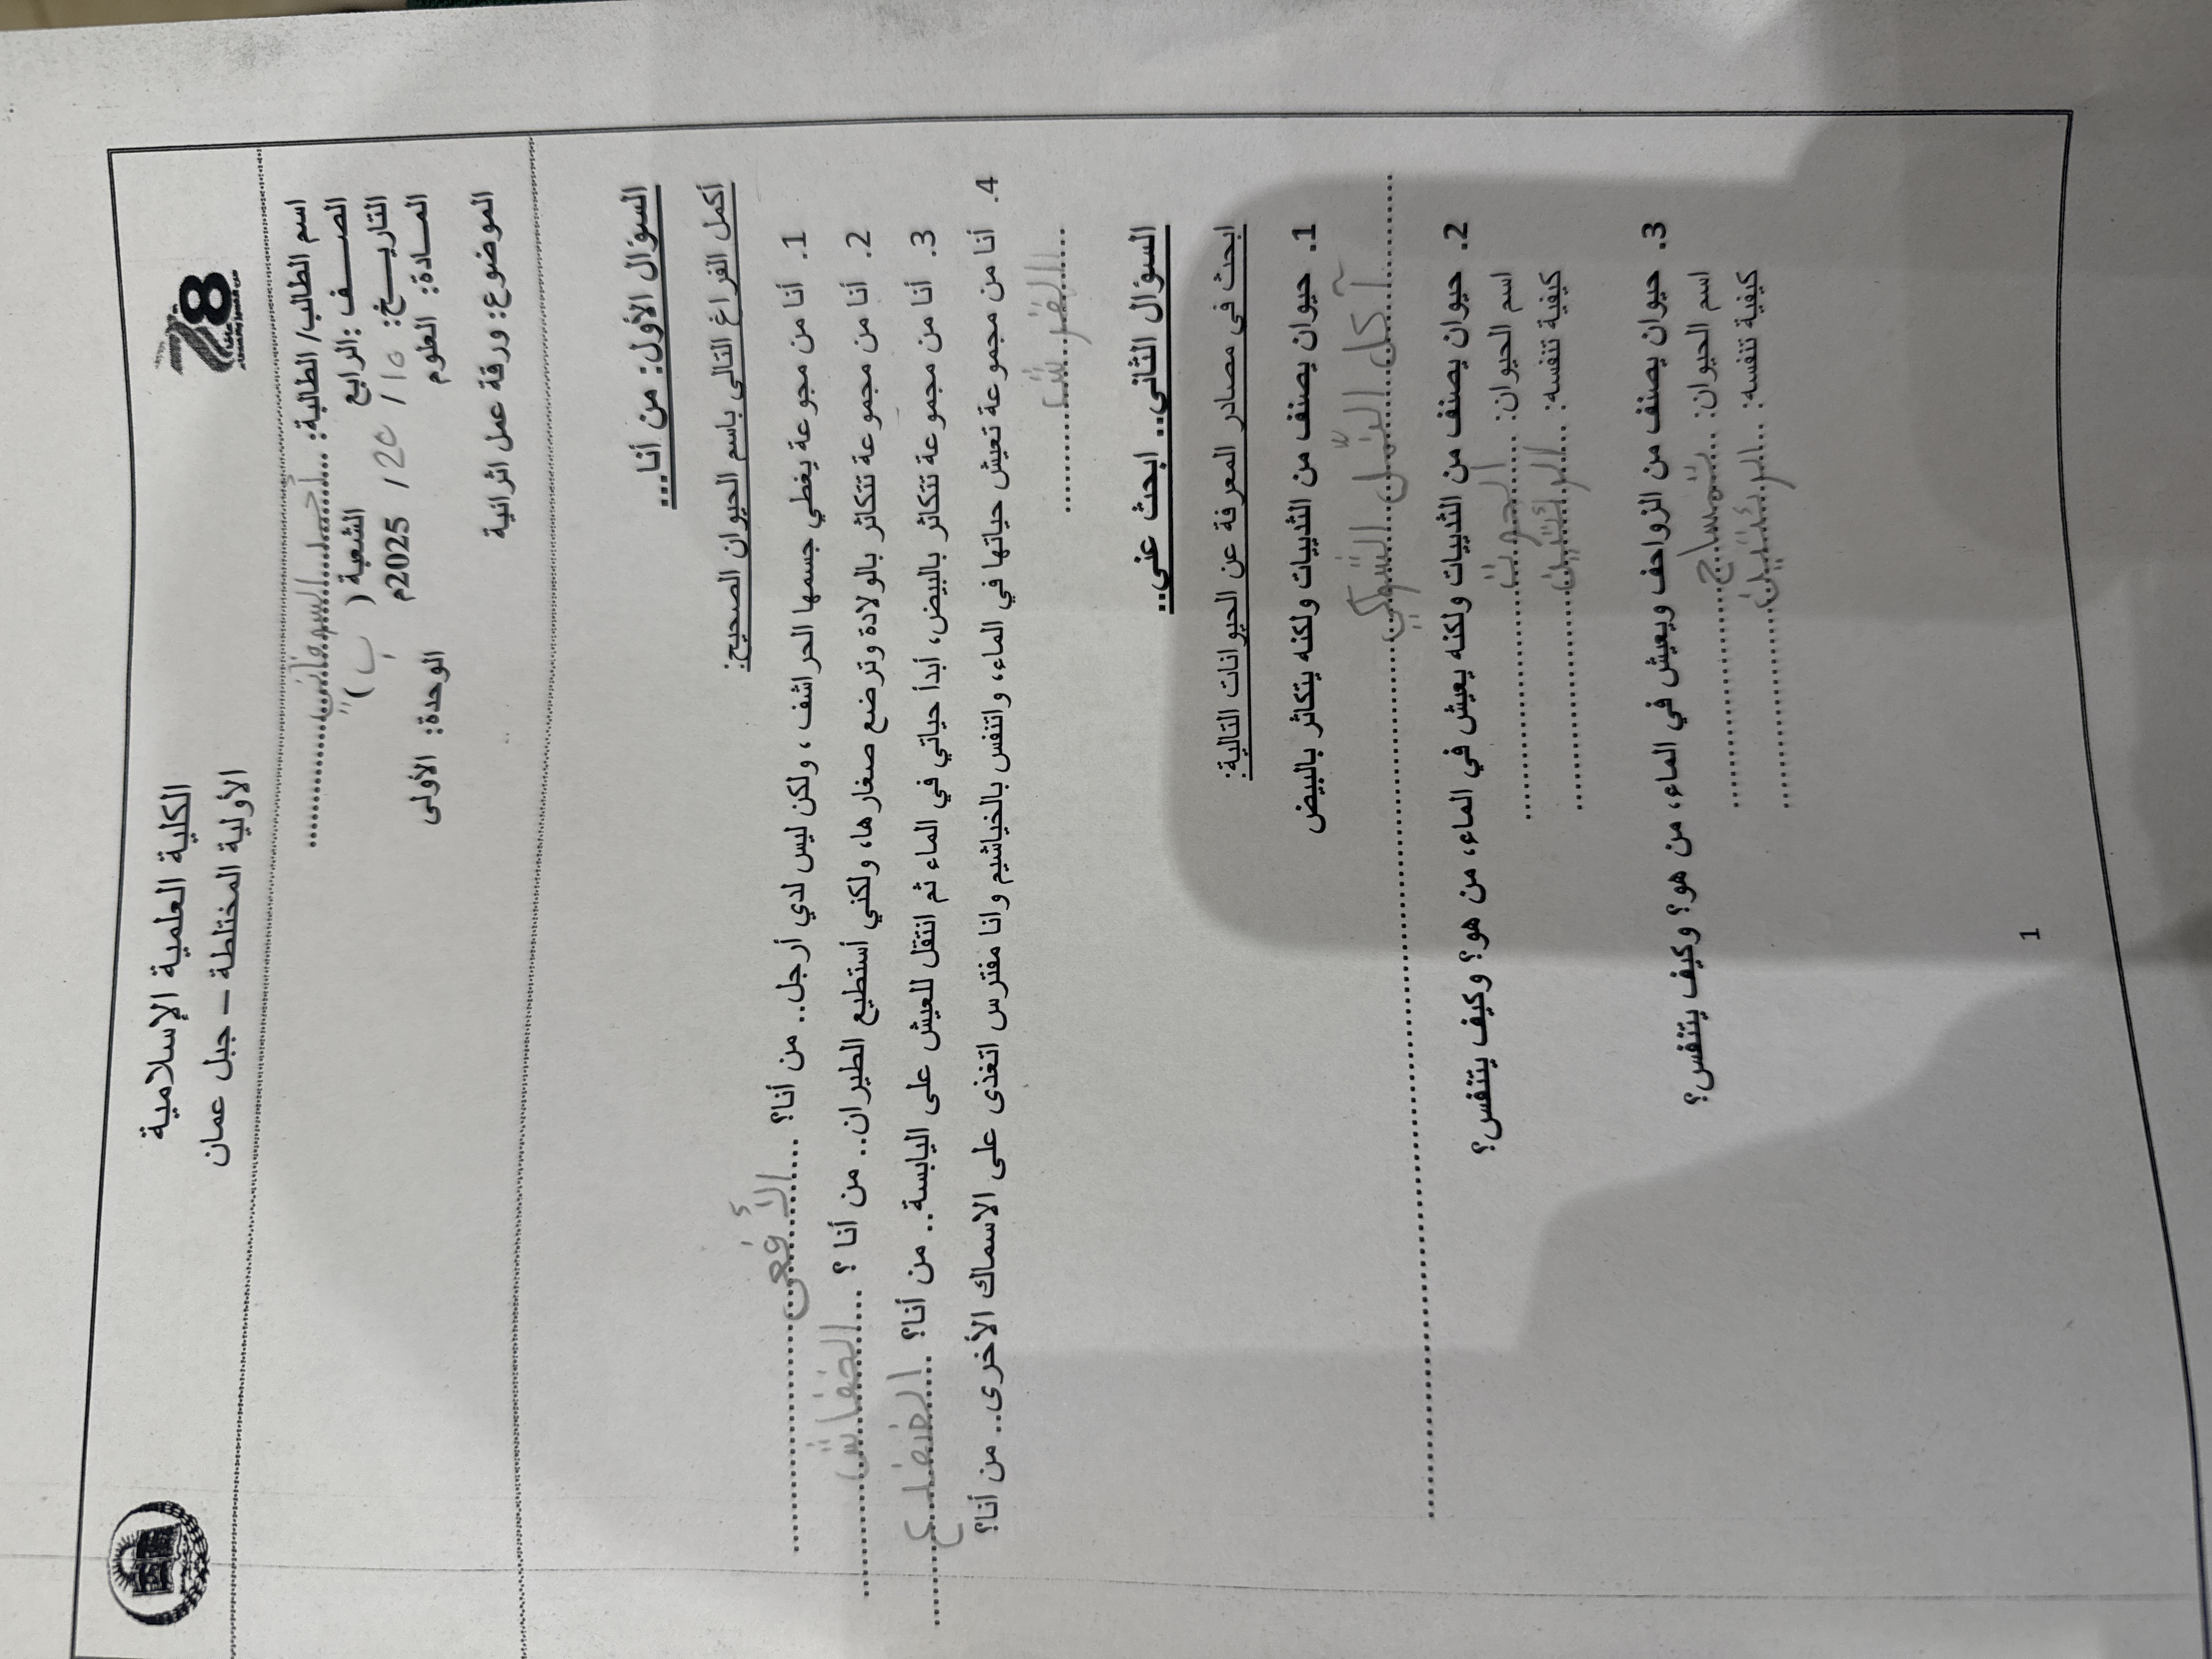 الكلية العلمية الإسلامية
الأولية المختلطة – جبل عمان
78
اسم الطالب/ الطالبة: أحمد
الصـــــف :الرابع الشعبة ( ب )
التاريـــخ: / 10 / 2025م
المــادة: العلوم الوحدة: الأولى
الموضوع: ورقة عمل اثرائية
السؤال الأول: من أنا...
أكمل الفراغ التالي باسم الحيوان الصحيح:
1. أنا من مجوعة يغطي جسمها الحراشف ، ولكن ليس لدي أرجل.. من أنا؟ الأفعى
2. أنا من مجموعة تتكاثر بالولادة وترضع صغارها، ولكني أستطيع الطيران.. من أنا ؟ الخفاش
3. أنا من مجموعة تتكاثر بالبيض، أبدأ حياتي في الماء ثم انتقل للعيش على اليابسة.. من أنا؟ الضفدع
4. أنا من مجموعة تعيش حياتها في الماء، واتنفس بالخياشيم وانا مفترس اتغذى على الاسماك الأخرى.. من أنا؟
القرش
السؤال الثاني.. ابحث عني..
ابحث في مصادر المعرفة عن الحيوانات التالية:
1. حيوان يصنف من الثدييات ولكنه يتكاثر بالبيض
آكل النّمل الشوكي
2. حيوان يصنف من الثدييات ولكنه يعيش في الماء، من هو؟ وكيف يتنفس؟
اسم الحيوان: الحوت
كيفية تنفسه: الرئتين
3. حيوان يصنف من الزواحف ويعيش في الماء، من هو؟ وكيف يتنفس؟
اسم الحيوان: تمساح
كيفية تنفسه: الرئتين
1